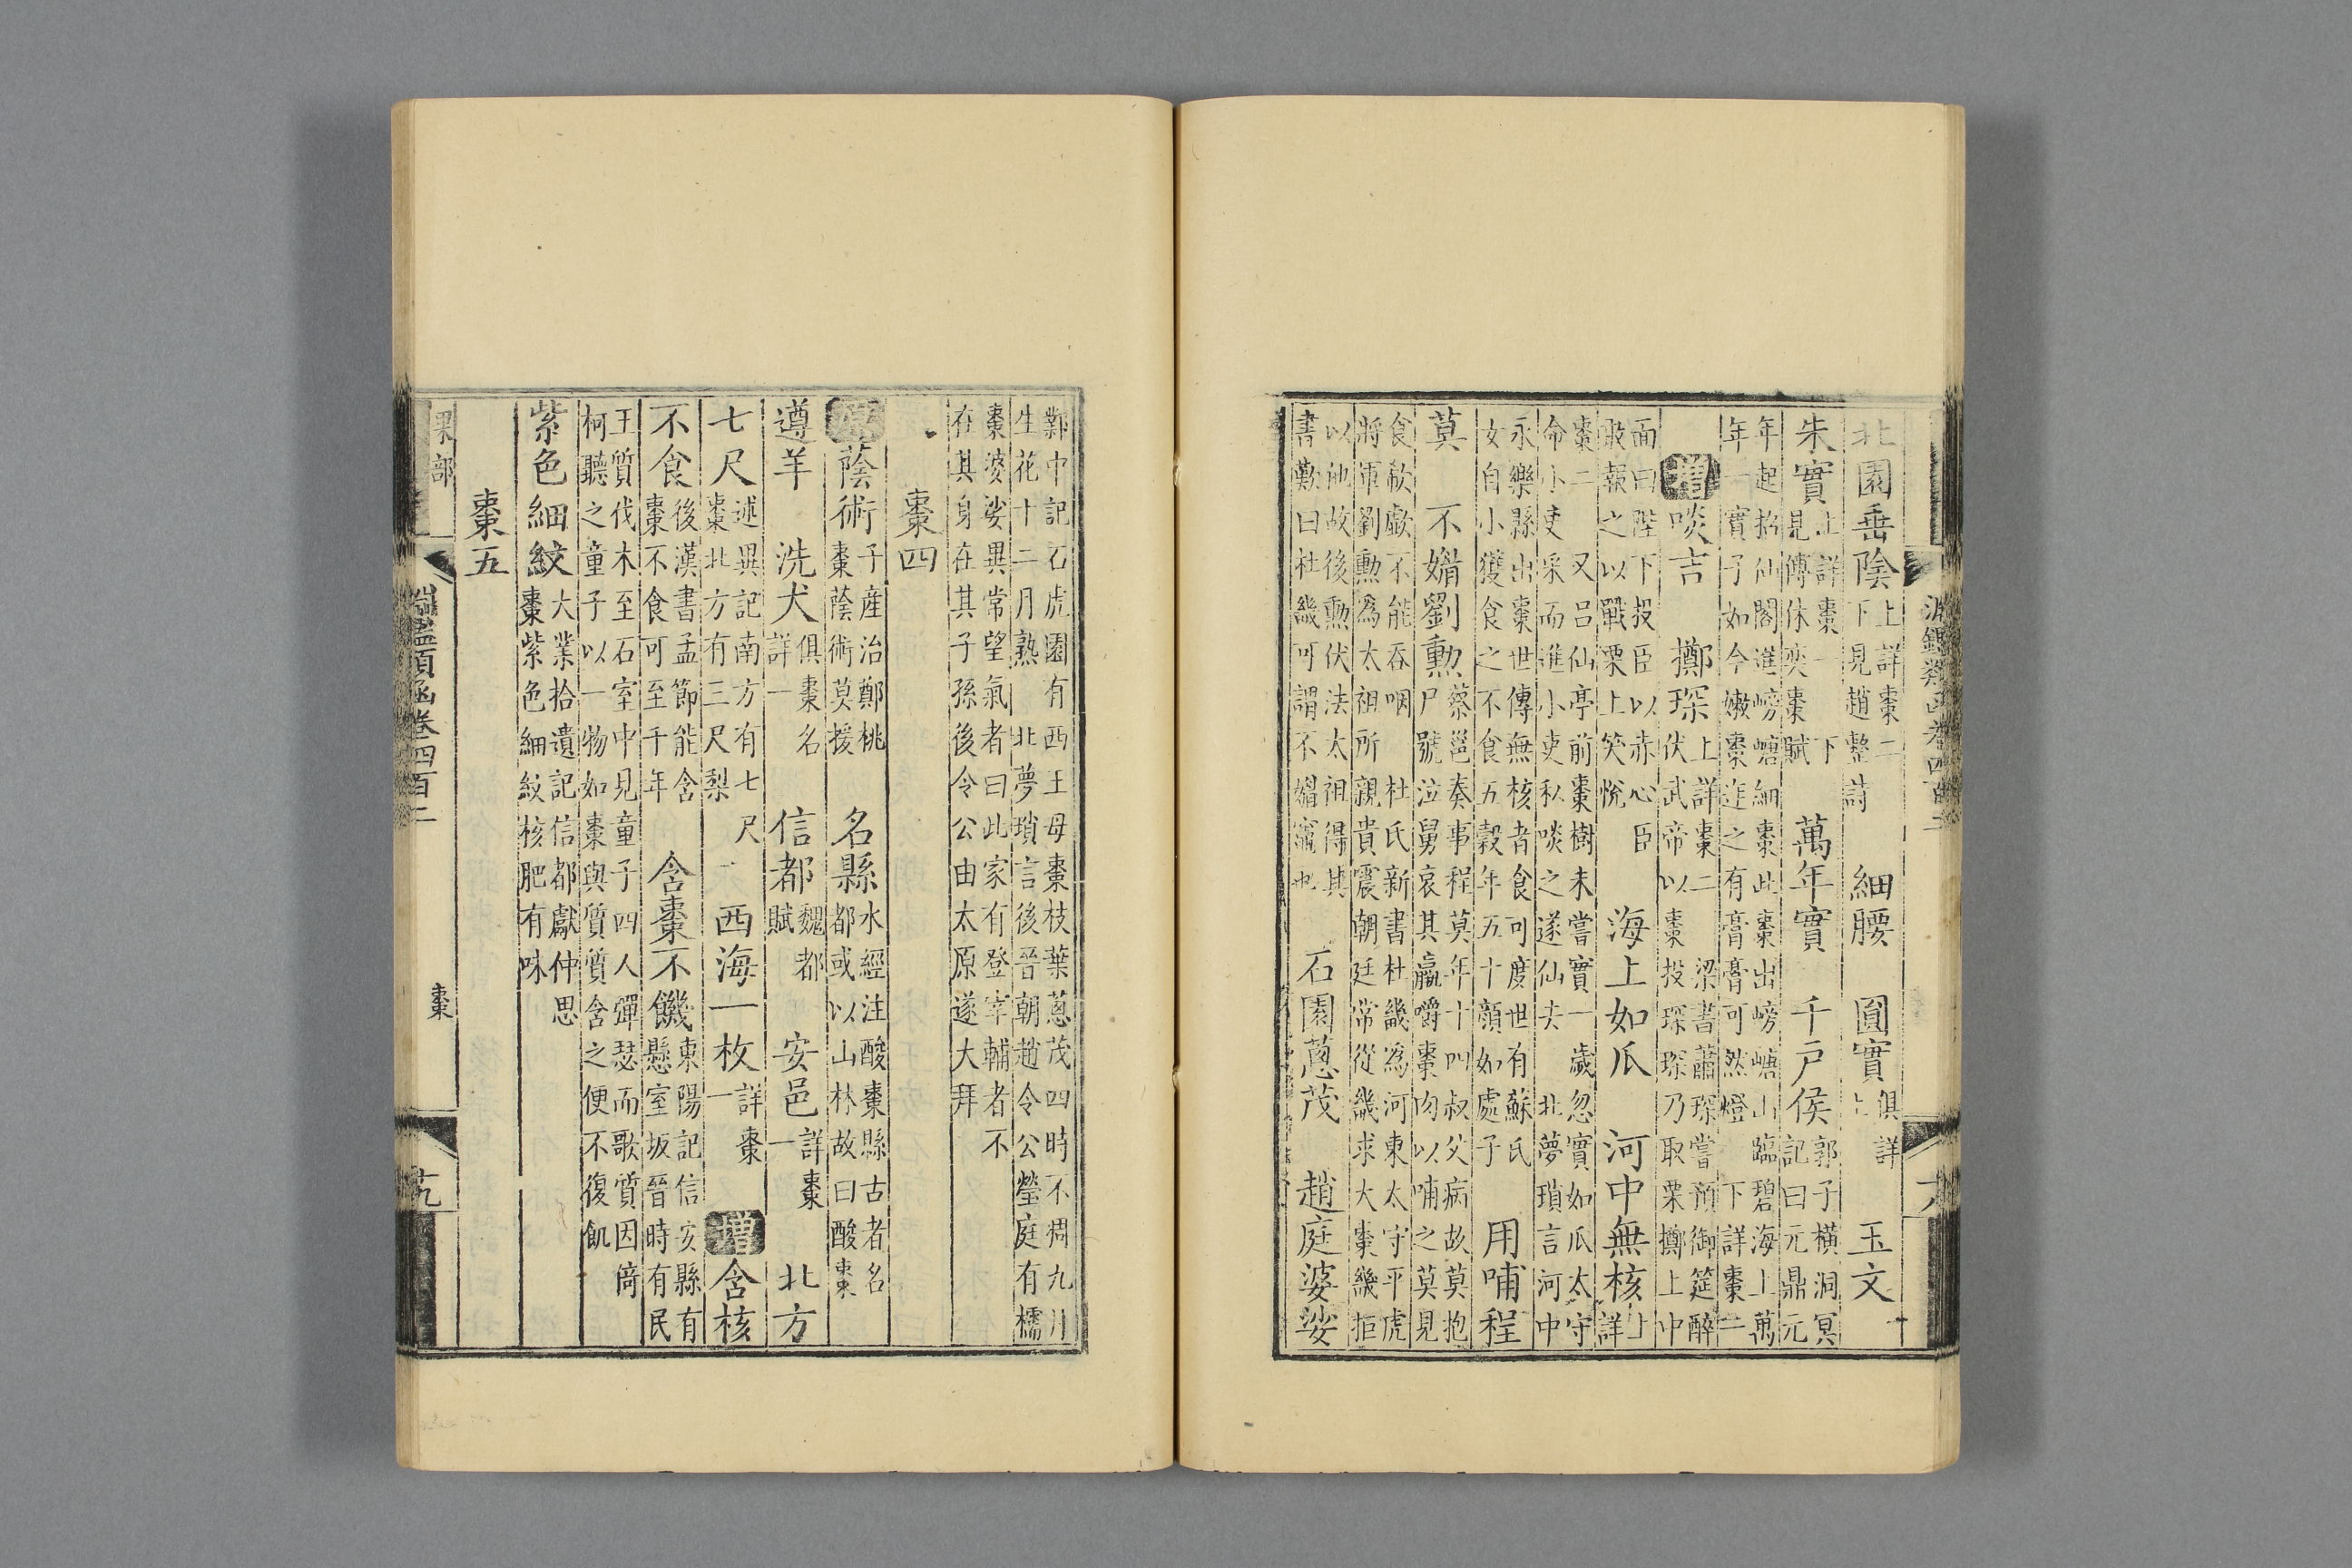 淵鑑類函卷四百二
北園垂陰上詳棗二下見趙整詩　細腰　圓實俱詳上　玉文
朱實上詳棗一　下見傅休奕棗賦　萬年實　千戶侯郭子橫洞冥記曰元鼎元
年起招仙閣進嵭嵣細棗此棗出嵭嵣山臨碧海上萬年一實子如今嫩棗迮之有膏膏可然燈　下詳棗二
增啖吉　擲琛上詳棗二　梁書蕭琛嘗預御筵醉伏武帝以棗投琛琛乃取栗擲上中
面曰陛下投臣以赤心臣敢報之以戰栗上笑悅　海上如瓜　河中無核上詳
棗二　又呂仙亭前棗樹未嘗實一歲忽實如瓜太守命小吏采而進小吏私啖之遂仙去　北夢瑣言河中
永樂縣出棗世傳無核者食可度世有蘇氏女自小獲食之不食五穀年五十顏如處子　用哺程
莫　不媚劉勳蔡邕奏事程莫年十四叔父病故莫抱尸號泣舅哀其羸嚼棗肉以哺之莫見
食欷歔不能吞咽　杜氏新書杜畿為河東太守平虎將軍劉勳為太祖所親貴震朝廷常從畿求大棗畿拒
以他故後勳伏法太祖得其書歎曰杜畿可謂不媚竈也　石園蔥茂　趙庭婆娑
鄴中記石虎園有西王母棗枝葉蔥茂四時不凋九月生花十二月熟　北夢瑣言後晉朝趙令公瑩庭有櫺
棗婆娑異常望氣者曰此家有登宰輔者不在其身在其子孫後令公由太原遂大拜
棗四
原蔭術子產治鄭桃棗蔭術莫援　名縣水經注酸棗縣古者名都或以山林故曰酸棗
遵羊　洗犬俱棗名詳一　信都魏都賦　安邑詳棗一　北方
七尺述異記南方有七尺棗北方有三尺梨　西海一枚詳棗一　增含核
不食後漢書孟節能含棗不食可至千年　含棗不饑東陽記信安縣有懸室坂晉時有民
王質伐木至石室中見童子四人彈瑟而歌質因倚柯聽之童子以一物如棗與質質含之便不復飢
紫色細紋大業拾遺記信都獻仲思棗棗紫色細紋核肥有味
棗五
果部
淵鑑類函卷四百二
棗
十九